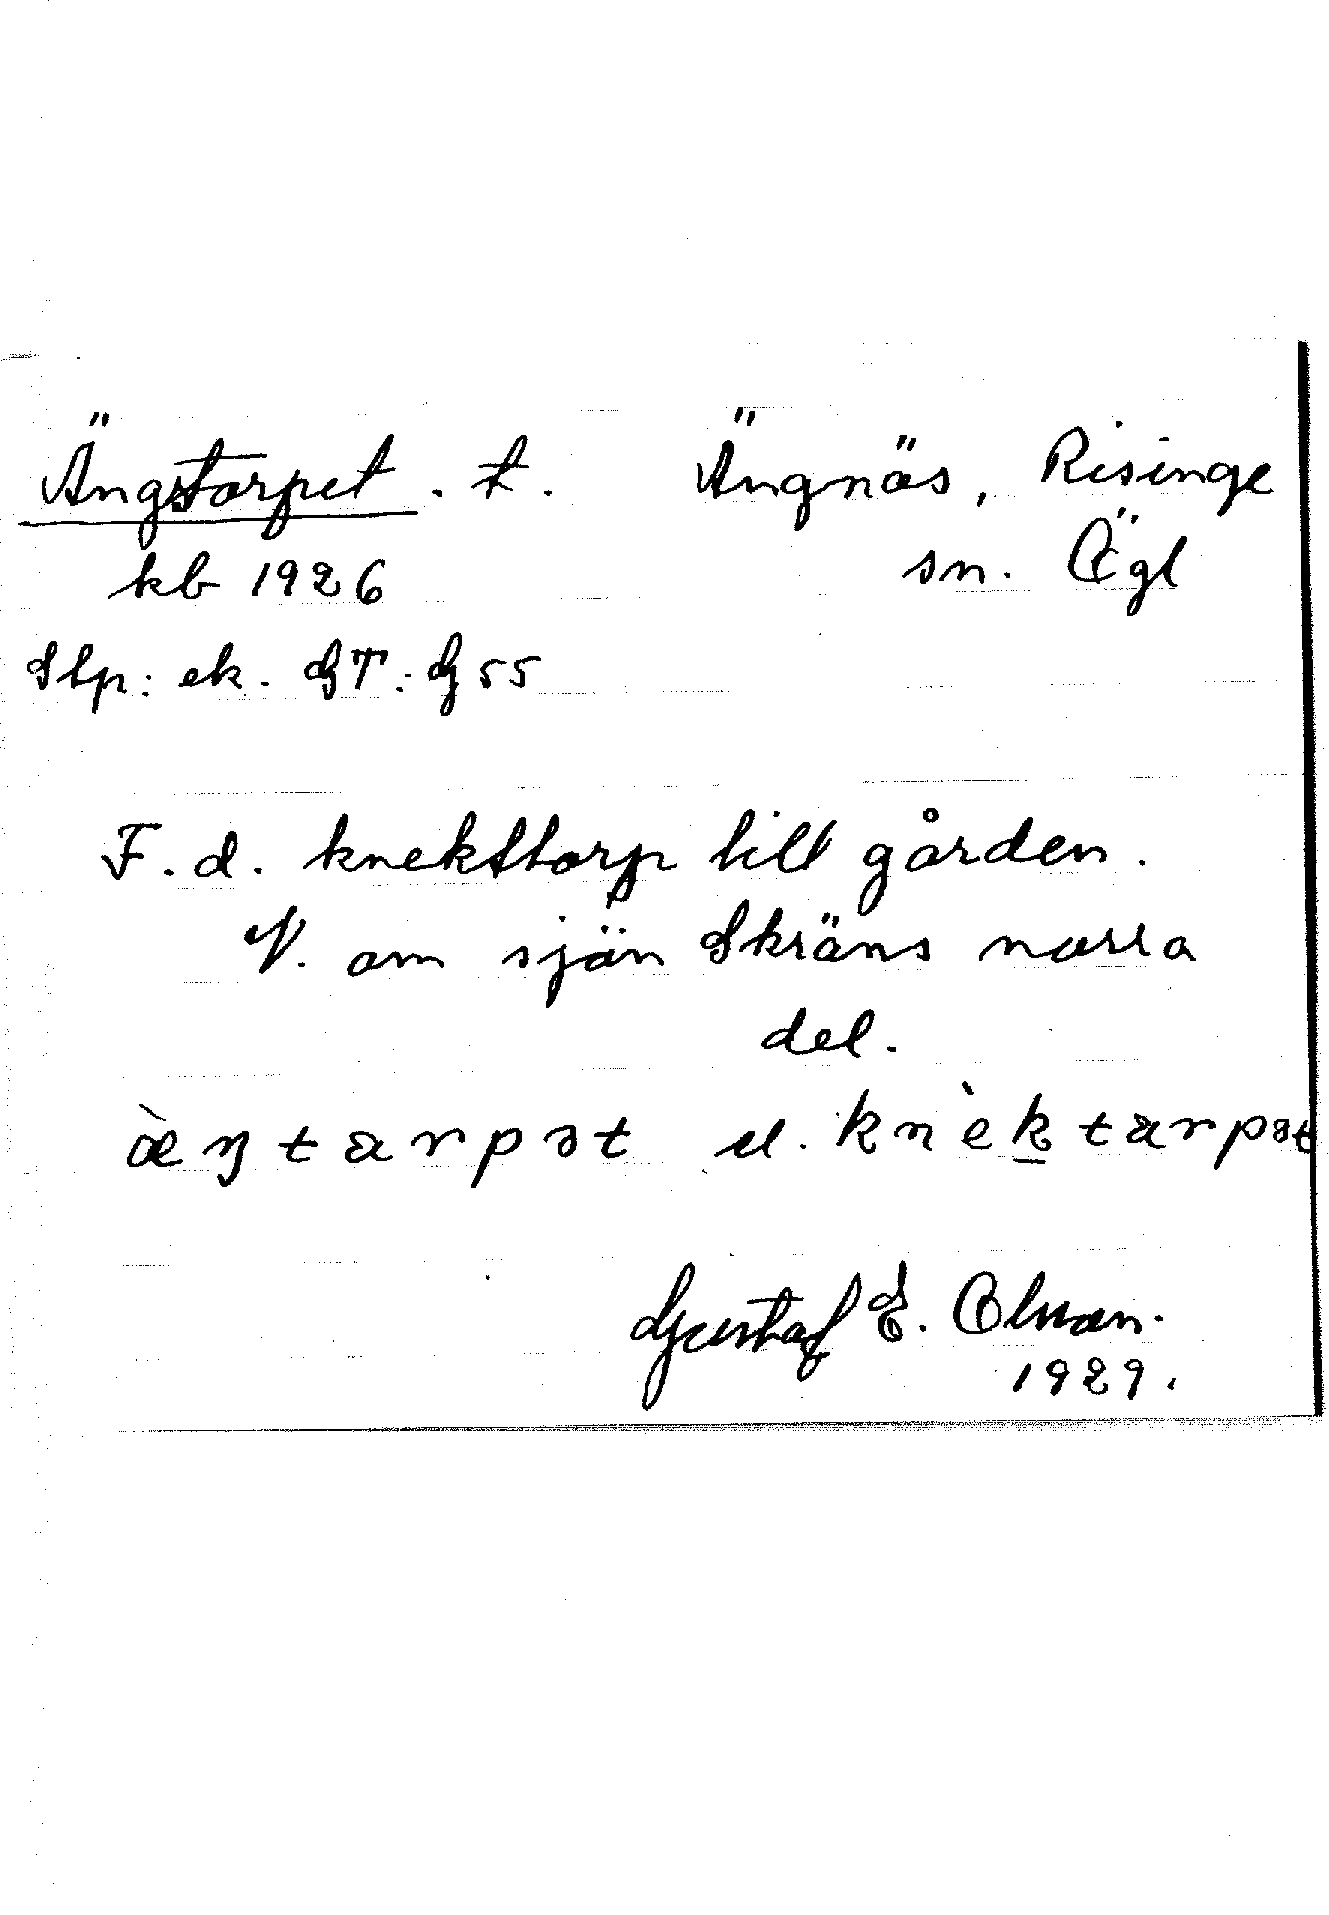 Ängstorpet. t. Ängnäs, Risinge
kb 1926 sn. Ögl
Stp: ek. GT. G 55
F. d. knekttorp till gården.
V. om sjön Skräns norra
del.
æ̀ŋtarpət el. knèktarpət
Gustaf E. Olsson.
1929.